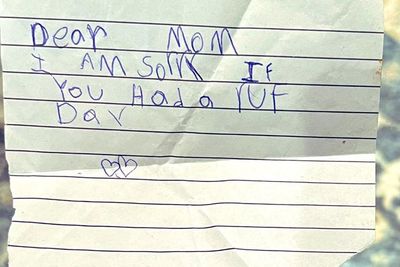 Dear Mom
I AM SORRY IF
You Had a rUF
Day